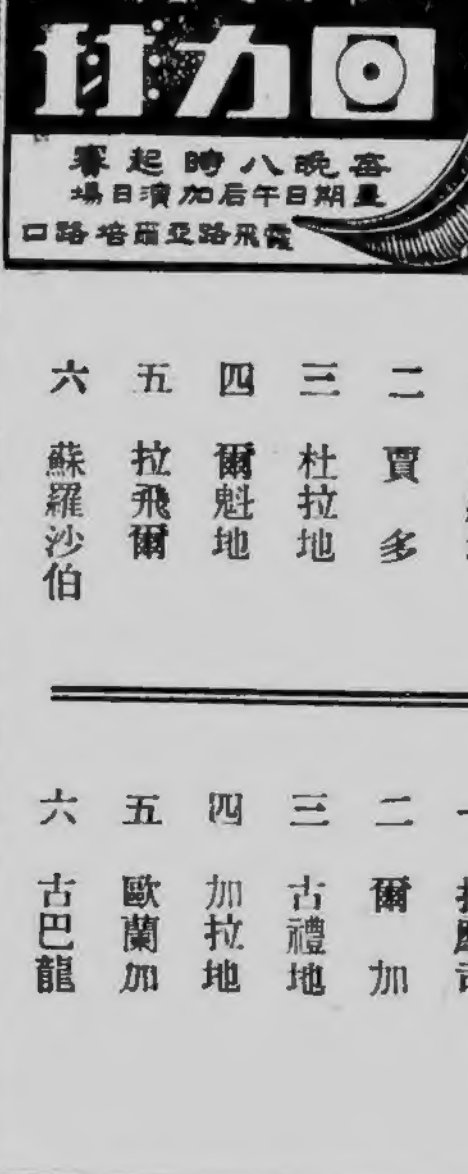 回力球
每晚八時起賽
星期日午后加演日場
霞飛路亞爾培路口
二 賈多
三 杜拉地
四 爾魁地
五 拉飛爾
六 蘇羅沙伯
二 爾加
三 古禮地
四 加拉地
五 歐蘭加
六 古巴龍